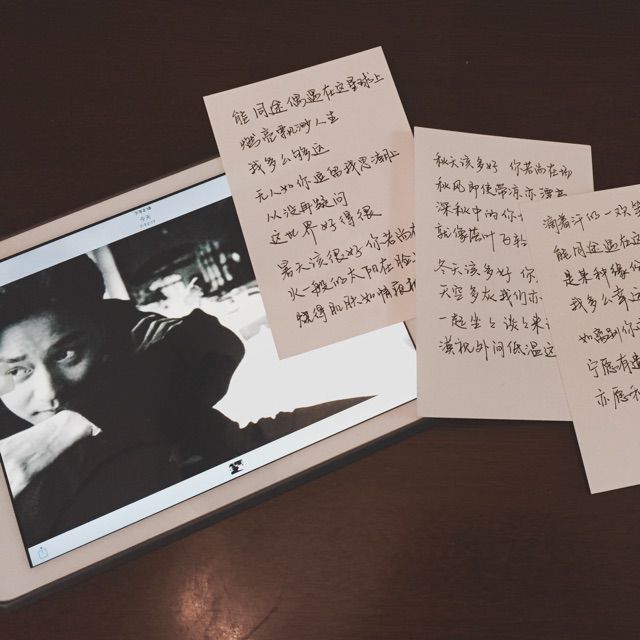 今天
能同途偶遇在这星球上
燃亮飘渺人生
我多么够运
无人如你逗留我思潮上
从没再疑问
这世界好得很
暑天该很好 你若尚在
火一般的太阳在脸
烧得肌肤如情痕
秋天该多好 你若尚在
秋风即使带凉亦漂亮
深秋中的你
就像落叶飞
冬天该多好 你
天空多灰 我们亦
一起坐坐谈谈来
漠视外间低温这
滴着汗的一双
能同途偶遇在这
是某种缘份
我多么幸运
如离别你
宁愿有遗
亦愿和